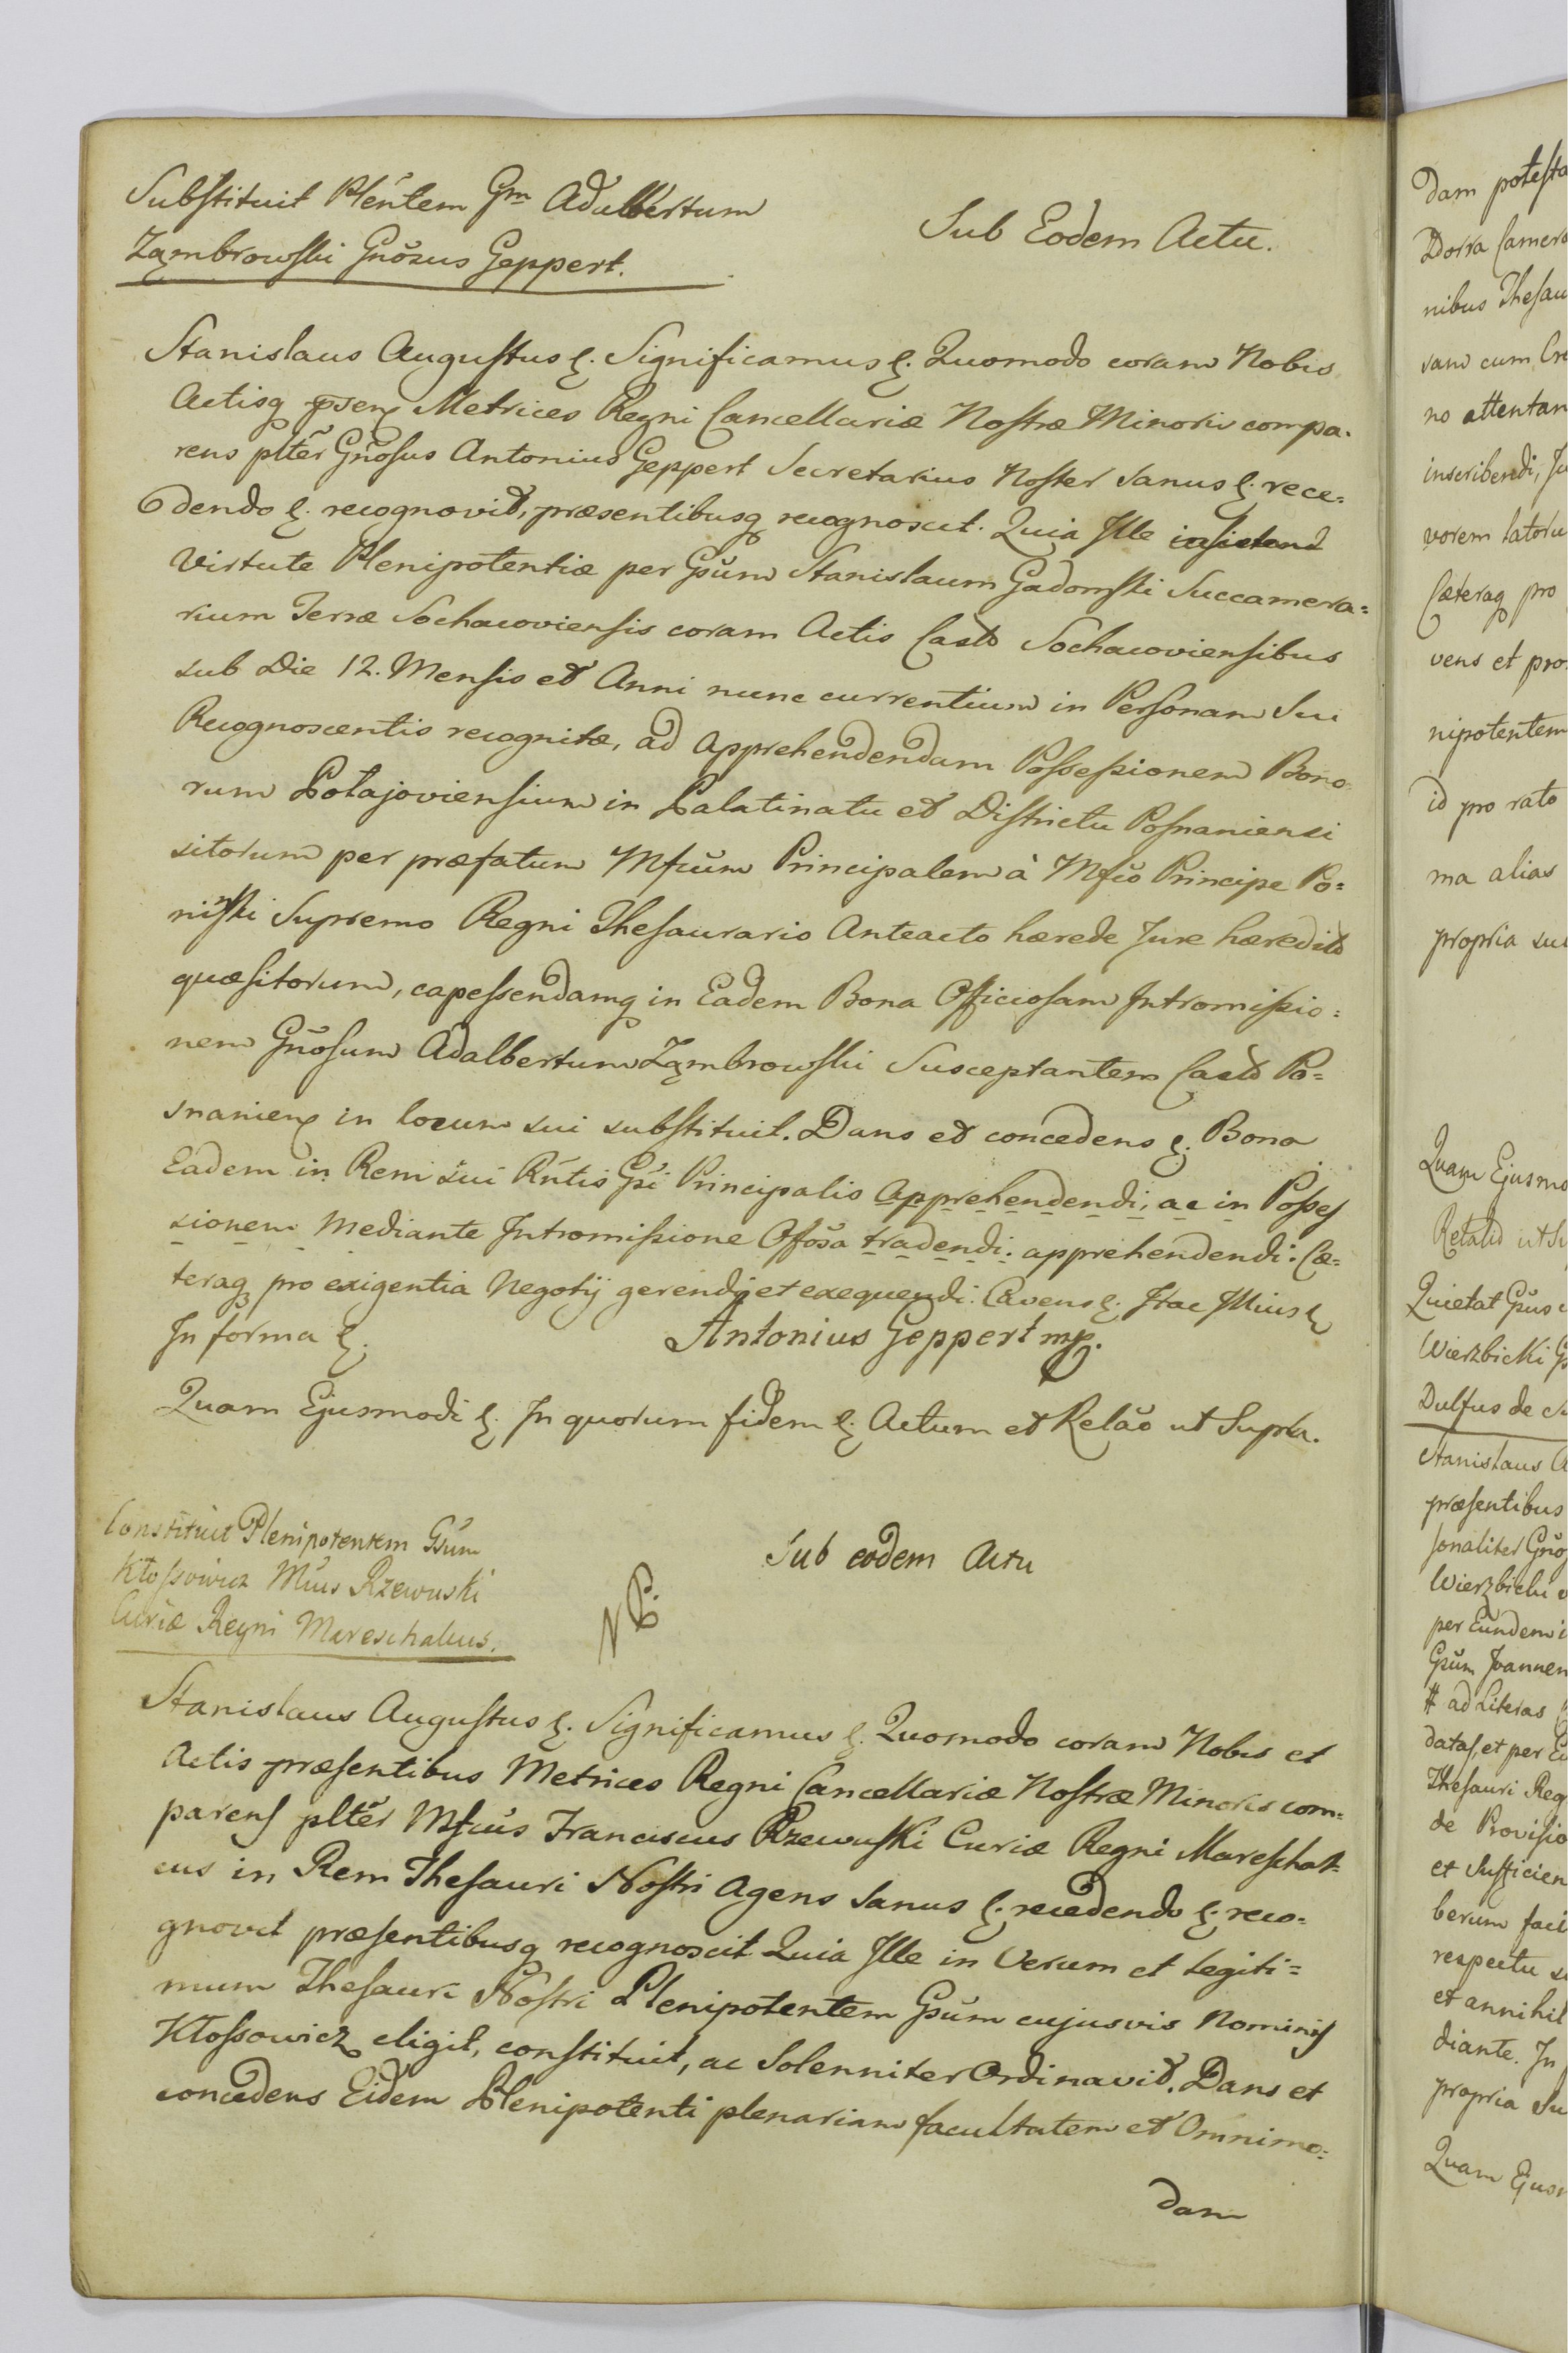 Substituit Plentem Gm Adalbertum
Zambrowski Gnosus Geppert.
Sub Eodem Actu.
Stanislaus Augustus &. Significamus &. Quomodo coram Nobis
Actisq psen Metrices Regni Cancellariæ Nostræ Minoris compa-
rens plter Gnosus Antonius Geppert Secretarius Noster sanus &. rece-
dendo &. recognovit, præsentibusq recognoscit. Quia Ille
Virtute Plenipotentiæ per Gsum Stanislaum Gadomski Succamera=
rium Terræ Sochacoviensis coram Actis Castr Sochacoviensibus
sub Die 12. Mensis et Anni nunc currentium in Personam Sui
Recognoscentis recognitæ, ad apprehendendam Possessionem Bono-
rum Potajoviensium in Palatinatu et Districtu Posnaniensi
sitorum per præfatum Mfcum Principalem à Mfco Principe Po=
niński Supremo Regni Thesaurario Anteacto hærede Jure hæredit
quæsitorum, capessendamq in Eadem Bona Officiosam Intromissio=
nem Gnosum Adalbertum Zambrowski Susceptantem Castr Po=
snanien in locum sui substituit. Dans et concedens &. Bona
Eadem in Rem sui Rntis Gsi Principalis apprehendendi, ac in Posses
sionem Mediante Intromissione Offosa tradendi. apprehendendi. Cæ-
teraq pro exigentia Negotij gerendi et exequendi. Cavens &. Itac Illius &
In forma &.
Antonius Geppert mp.
Quam Ejusmodi &. In quorum fidem &. Actum et Relao ut Supra.
Constituit Plenipotentem Gsum
Kłossowicz Mcus Rzewuski
Curiæ Regni Mareschalcus.
Sub eodem Actu
NB.
Stanislaus Augustus &. Significamus &. Quomodo coram Nobis et
Actis præsentibus Metrices Regni Cancellariæ Nostræ Minoris com-
parens plter Mfcus Franciscus Rzewuski Curiæ Regni Mareschal-
cus in Rem Thesauri Nostri Agens sanus &. recedendo &. reco-
gnovit præsentibusq recognoscit Quia Ille in Verum et Legiti=
mum Thesauri Nostri Plenipotentem Gsum cujusvis Nominis
Kłossowicz eligit, constituit, ac Solenniter Ordinavit. Dans et
concedens Eidem Plenipotenti plenariam facultatem et Omnimo-
dam
dam potesta
nibus Thesau
no attentan
inscribendi, Ju
vorem latoru
Cæteraq pro
vens et pro
nipotentem
id pro rato
ma alias
propria su
Quam Ejusmo
Quietat Gsus
Wierzbicki G
Dulfus de
Stanislaus A
præsentibus
sonaliter Gno
Wierzbicki
per Eundem i
Gsum Joannem
# ad Literas
datas, et per Eu
Thesauri Reg
de Provisio
et Sufficien
berum faci
respectu su
et annihil
diante. In
propria Su
Quam Ejusm